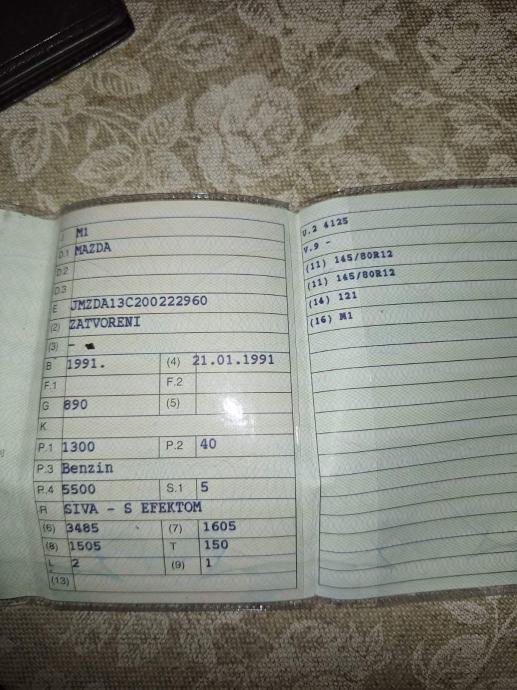 M1
D.1 MAZDA
D.2
D.3
E JMZDA13C200222960
(2) ZATVORENI
(3) -
B 1991. (4) 21.01.1991
F.1 F.2
G 890 (5)
K
P.1 1300 P.2 40
P.3 Benzin
P.4 5500 S.1 5
R SIVA - S EFEKTOM
(6) 3485 (7) 1605
(8) 1505 T 150
L 2 (9) 1
(13)
U.2 4125
V.9 -
(11) 145/80R12
(11) 145/80R12
(14) 121
(16) M1